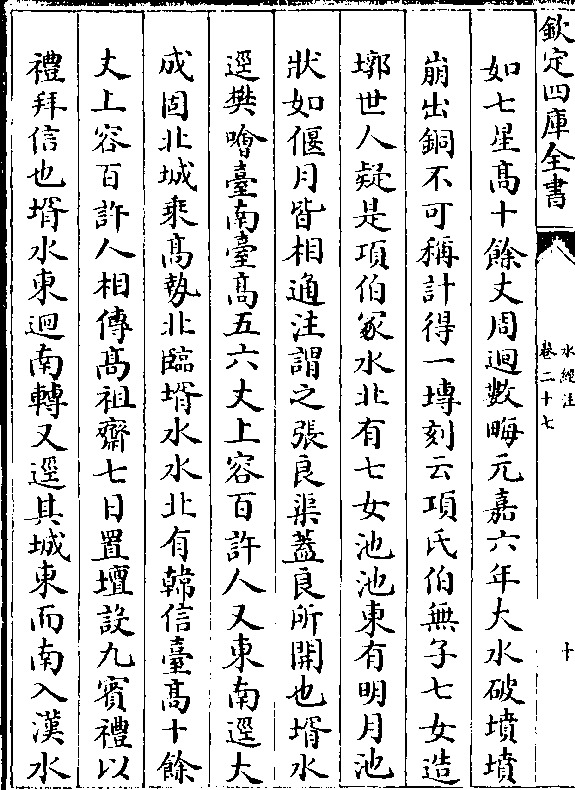 欽定四庫全書
水經注
卷二十七
十
如七星高十餘丈周迴數畮元嘉六年大水破墳墳
崩出銅不可稱計得一塼刻云項氏伯無子七女造
墎世人疑是項伯冢水北有七女池池東有明月池
狀如偃月皆相通注謂之張良渠蓋良所開也壻水
逕樊噲臺南臺高五六丈上容百許人又東南逕大
成固北城乘高勢北臨壻水水北有韓信臺高十餘
丈上容百許人相傳高祖齋七日置壇設九賓禮以
禮拜信也壻水東迴南轉又逕其城東而南入漢水